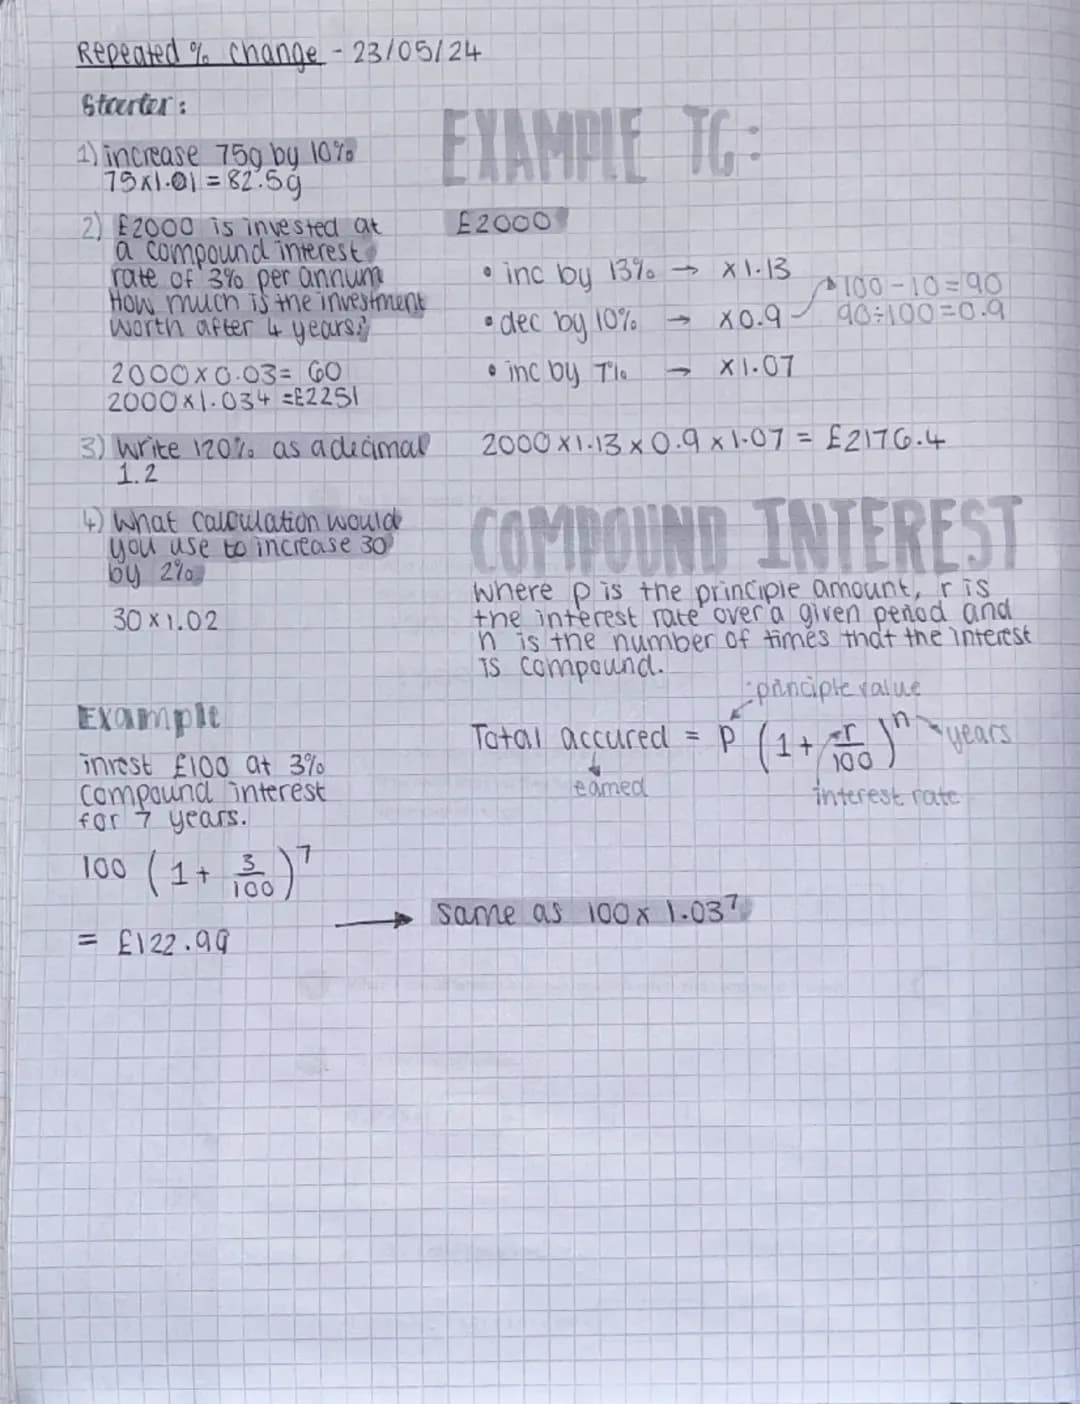 Repeated % change - 23/05/24
Starter:
1) increase 75g by 10%
75x1.01 = 82.5g
2) £2000 is invested at
a compound interest
rate of 3% per annum
How much is the investment
worth after 4 years?
2000x0.03= 60
2000x1.034 =£2251
3) Write 120% as a decimal
1.2
4) What calculation would
you use to increase 30
by 2%
30x1.02
Example
invest £100 at 3%
compound interest
for 7 years.
100 (1+ 3/100)⁷
= £122.99
EXAMPLE TG:
£2000
• inc by 13% → x1.13
• dec by 10% → x0.9
100-10=90
90÷100=0.9
• inc by 7% → x1.07
2000x1.13x0.9x1.07 = £2176.4
COMPOUND INTEREST
where p is the principle amount, r is
the interest rate over a given period and
n is the number of times that the interest
is compound.
principle value
Total accured = P (1+ r/100)ⁿ years
earned
interest rate
→ same as 100x 1.03⁷